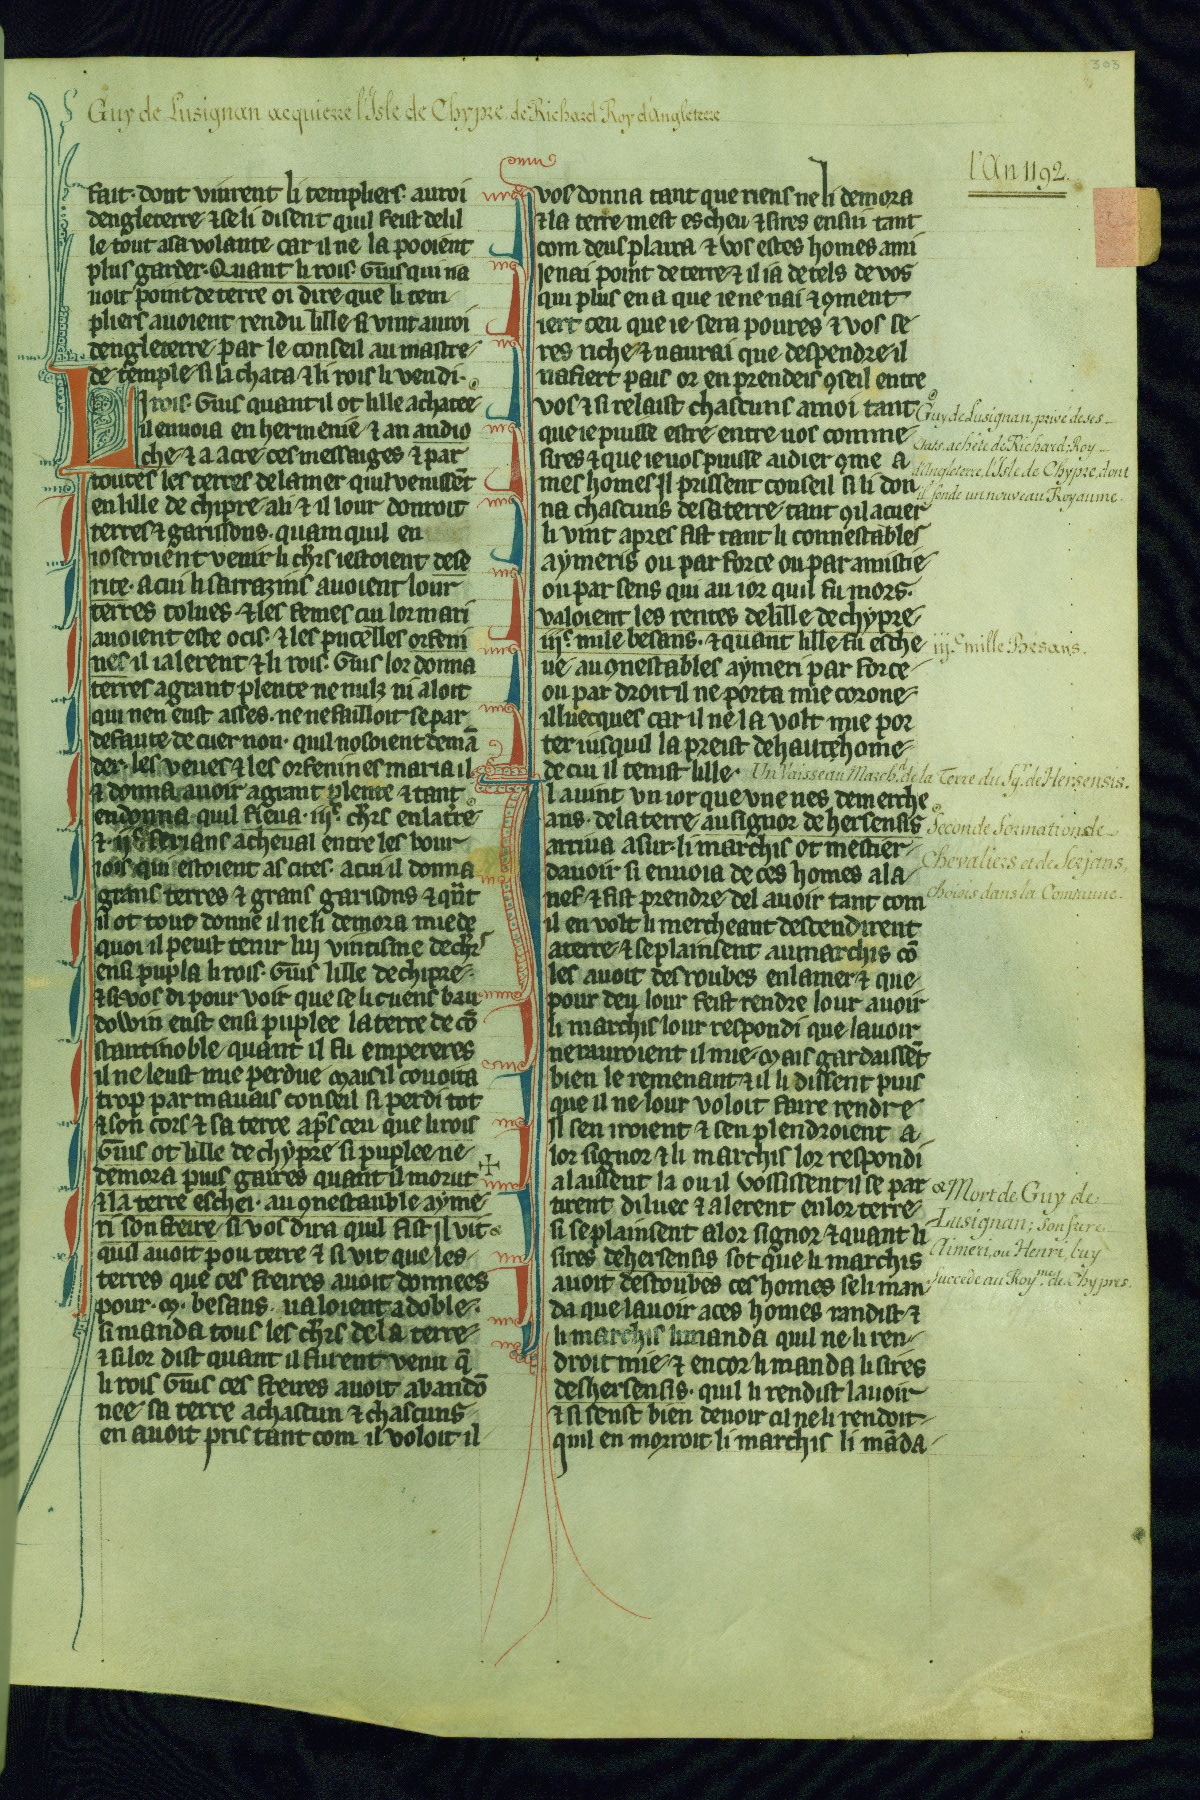 303
Guy de Lusignan acquierre l'Isle de Chypre de Richard Roy d'Angleterre
l'An 1192.
fait· dont vinrent li templiers· au roi
dengleterre ⁊ se li disent quil feist de lil
le tout a sa volante car il ne la pooient
plus garder· Quant li rois· Guis qui na
uoit point de terre oi dire que li tem
pliers auoient rendu lille si vint au roi
dengleterre par le conseil au maistre
de temple si lachata ⁊ li rois li vendi·
LI rois· Guis quant il ot lille achatee
il enuoia en hermenie ⁊ an andio
che ⁊ a acre ces messaiges ⁊ par
toutes les terres de la mer quil venissēt
en lille de chipre a li ⁊ il lour donroit
terres ⁊ garisons· quam quil en
ioseroient venir li ch̄rs iestoient dese
rite· a cui li sarrazins auoient lour
terres tolues· ⁊ les femes cui lor mari
auoient este ocis· ⁊ les pucelles orfeni
nes il i alerent ⁊ li rois· Guis lor donna
terres a grant plente ne nulz ni aloit
qui nen eust asses· ne ne failloit se par
defaute de cuer non· quil nosoient demā
der· les veues ⁊ les orfenines maria il
⁊ donna auoir a grant plente ⁊ tant
en donna quil fieua· iijᶜ· ch̄rs en la tre
⁊ ijᶜ serians a cheual entre les bour
iois qui estoient as cites· a cui il donna
grans terres ⁊ grans garisons ⁊ qūt
il ot tout donne il ne li demora mie de
quoi il peust tenir lui vintisme de ch̄rs
ensi pupla li rois· Guis lille de chipre·
⁊ si vos di pour voir que se li cuens bau
dowin eust ensi puplee la terre de cō
stantinoble quant il fu empereres
il ne leust mie perdue mais il couoita
trop par mauais conseil si perdi tot
⁊ son cors ⁊ sa terre ap̄s ceu que li rois
Guis ot lille de chypre si puplee ne
demora puis gaires quant il morut
⁊ la terre eschei· au ꝯnestauble ayme
ri son freire si vos dira quil fist il vit
quil auoit pou terre ⁊ si vit que les
terres que ces freires auoit donnees
pour· m· besans· ualoient a doble·
si manda tous les ch̄rs de la terre
⁊ si lor dist quant il furent venu q̄
li rois Guis ces freires auoit abandō
nee sa terre a chascun ⁊ chascuns
en auoit pris tant com il voloit il
vos donna tant que riens ne li demora
⁊ la terre mest escheu ⁊ sires en sui tant
com deus plaira ⁊ vos estes homes a mi
Ie nai point de terre ⁊ il i a de tels de vos
qui plus en a que ie ne nai ⁊ ꝯment
iert ceu que ie sera poures ⁊ vos se
res riche ⁊ naurai que despendre il
nafiert pais or en prendeis ꝯseil entre
vos ⁊ si relaist chascuns a moi tant
que ie puisse estre entre uos comme
sires ⁊ que ie vos puisse aidier ꝯme a
mes homes Il prissent conseil si li don
na chascuns de sa terre tant ꝯ il a cuer
li vint apres fist tant li connestables
aymeris ou par force ou par amistie
ou par sens qui au ior quil fu mors·
valoient les rentes de lille de chypre
iijᶜ· mile besans· ⁊ quant lille fu esche
ue au ꝯnestables aymeri par force
ou par droit il ne porta mie corone
illuecques car il ne la volt mie por
ter iusquil la preist de haute home
de cui il tenist lille·
Il auint vn ior que vne nes de merche
ans· de la terre au signor de hersensis
arriua a sur· li marchis ot mestier
dauoir si enuoia de ces homes a la
nef ⁊ fist prendre del auoir tant com
il en volt li mercheant descendirent
a terre ⁊ se plainsent au marchis cō
les auoit desroubes en la mer ⁊ que
pour deu lour feist rendre lour auoir
li marchis lour respondi que lauoir
ne rauroient il mie mais gardaissēt
bien le remenant ⁊ il li dissent puis
que il ne lour voloit faire rendre
Il sen iroient ⁊ sen plendroient a
lor signor ⁊ li marchis lor respondi
alaissent la ou il voississent il se par
tirent diluec ⁊ alerent en lor terre
si se plainsent a lor signor ⁊ quant li
sires de hersensis sot que li marchis
auoit desroubes ces homes se li man
da que lauoir a ces homes randist ⁊
li marchis li manda quil ne li ren
droit mie ⁊ encor li manda li sires
de hersensis· quil li rendist lauoir
⁊ si seust bien de uoir cil ne li rendoit
quil en morroit li marchis li māda
Guy de Lusignan, privé de ses
états, achéte de Richard, Roy
d'Angleterre, l'Isle de Chypre, dont
il fonde un nouveau Royaume.
iijᶜ mille Bésans.
Un Vaisseau March.ᵈ de la Terre du Sg.ʳ de Hersensis.
Seconde formation de
Chevaliers et de Serjans,
choisis dans la Commune.
Mort de Guy de
Lusignan; son frere
Aimeri, ou Henri, luy
succède au Roy.ᵐᵉ de Chypres.